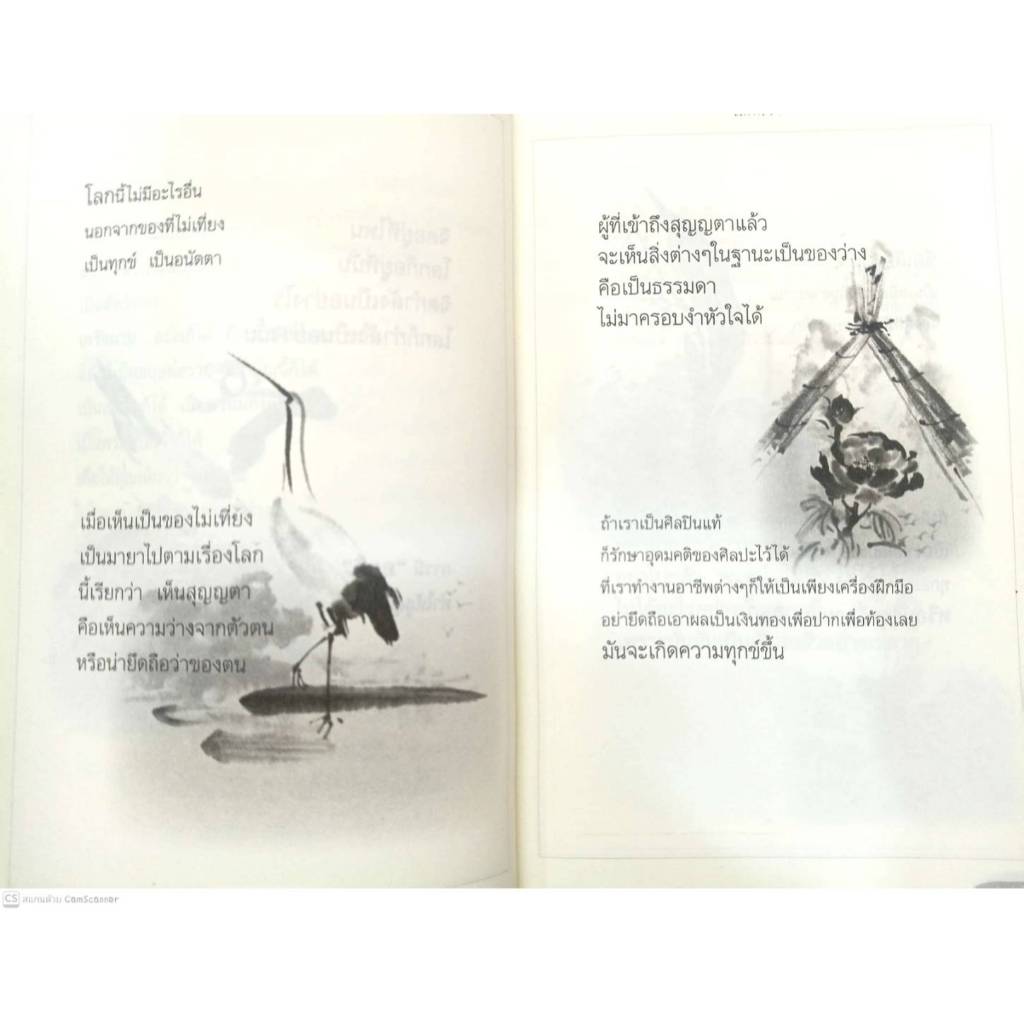 โลกนี้ไม่มีอะไรอื่น
นอกจากของที่ไม่เที่ยง
เป็นทุกข์ เป็นอนัตตา
เมื่อเห็นเป็นของไม่เที่ยง
เป็นมายาไปตามเรื่องโลก
นี้เรียกว่า เห็นสุญญตา
คือเห็นความว่างจากตัวตน
หรือน่ายึดถือว่าของตน
ผู้ที่เข้าถึงสุญญตาแล้ว
จะเห็นสิ่งต่างๆในฐานะเป็นของว่าง
คือเป็นธรรมดา
ไม่มาครอบงำหัวใจได้
ถ้าเราเป็นศิลปินแท้
ก็รักษาอุดมคติของศิลปะไว้ได้
ที่เราทำงานอาชีพต่างๆก็ให้เป็นเพียงเครื่องฝึกมือ
อย่ายึดถือเอาผลเป็นเงินทองเพื่อปากเพื่อท้องเลย
มันจะเกิดความทุกข์ขึ้น
CS สแกนด้วย CamScanner